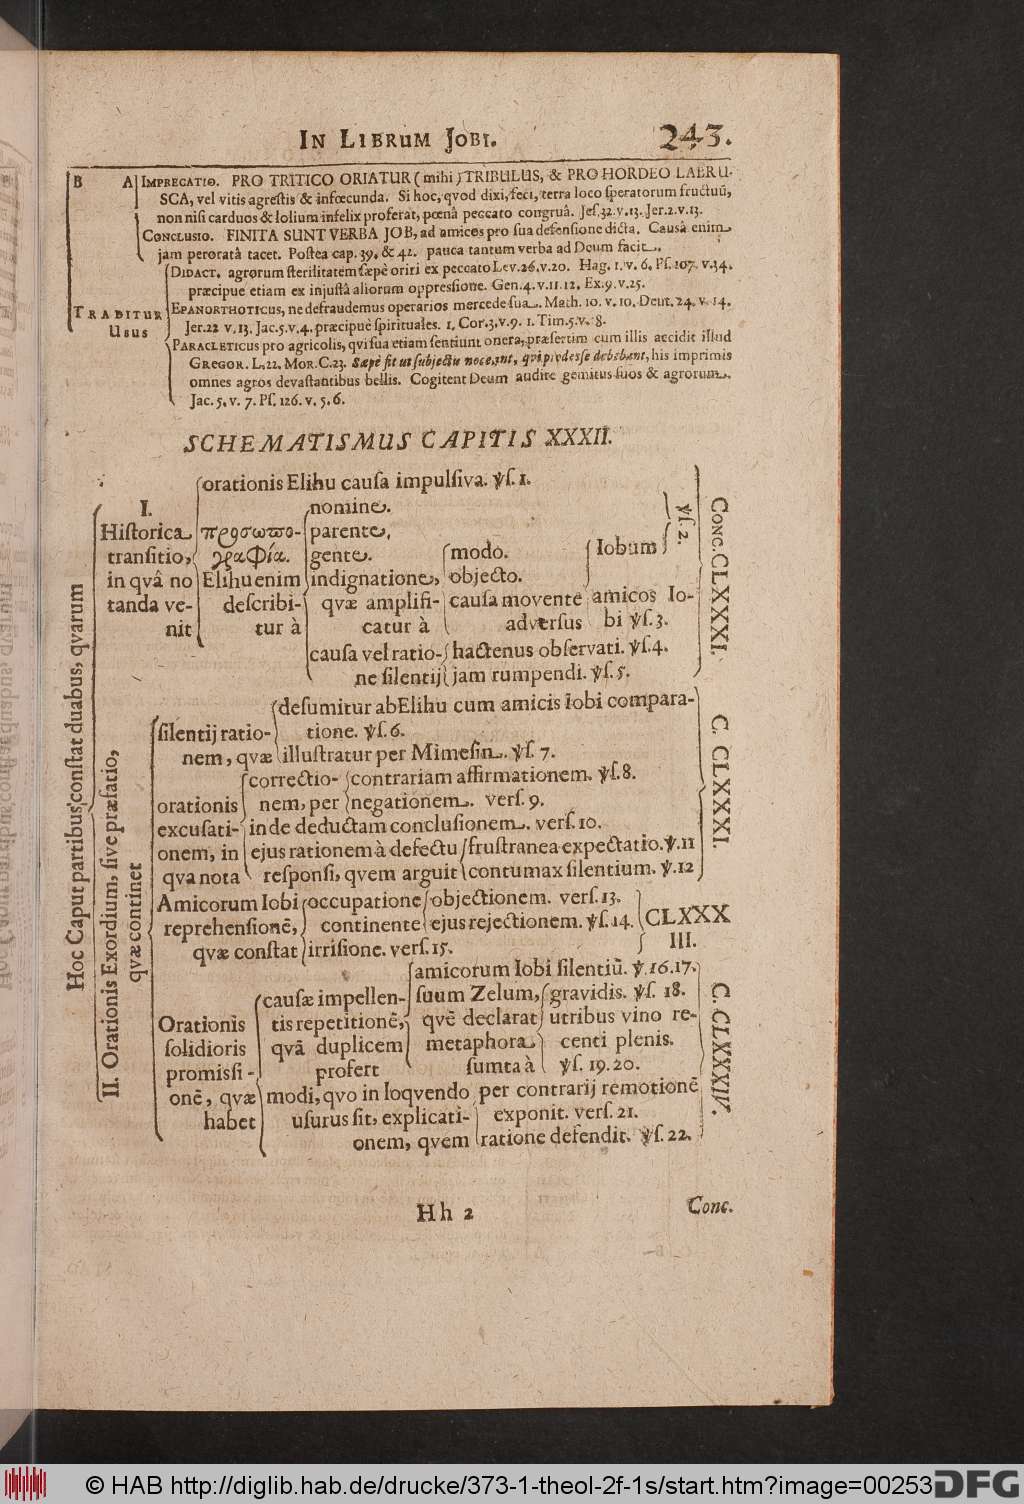 In Librum Jobi. 243.
B A Imprecatio. PRO TRITICO ORIATUR (mihi) TRIBULUS, & PRO HORDEO LABRU-
SCA, vel vitis agreſtis & infœcunda. Si hoc, qvod dixi, feci, terra loco ſperatorum fructuū,
non niſi carduos & lolium infelix proferat, pœnâ peccato congruâ. Jeſ.32.v.13. Jer.2.v.13.
Conclusio. FINITA SUNT VERBA JOB, ad amicos pro ſua defenſione dicta. Causâ enim
jam peroratâ tacet. Poſtea cap. 39. & 42. pauca tantum verba ad Deum facit.
Didact. agrorum ſterilitatem ſæpè oriri ex peccato Lev.26.v.20. Hag. 1. v. 6. Pſ. 107. v.34.
præcipue etiam ex injuſtâ aliorum oppreſſione. Gen.4. v.11.12. Ex.9. v.25.
Traditur Epanorthoticus, ne defraudemus operarios mercede ſua. Math. 10. v. 10. Deut. 24. v. 14.
Usus Jer.22 v.13. Jac.5.v.4. præcipuè ſpirituales. 1. Cor.3.v.9. 1. Tim.5.v. 8.
Paracleticus pro agricolis, qvi ſua etiam ſentiunt onera, præſertim cum illis accidit illud
Gregor. L.22. Mor.C.23. Sæpè fit ut ſubjectis noceant, qvi prodeſſe debebant, his imprimis
omnes agros devaſtantibus bellis. Cogitent Deum audire gemitus ſuos & agrorum.
Jac. 5. v. 7. Pſ. 126. v. 5. 6.
SCHEMATISMUS CAPITIS XXXII.
Hoc Caput partibus conſtat duabus, qvarum
I.
Hiſtorica
tranſitio,
in qvâ no
tanda ve-
nit
orationis Elihu cauſa impulſiva. ℣ſ. 1.
προσωπο-
γραφία.
Elihu enim
deſcribi-
tur à
nomine.
parente,
gente.
indignatione,
qvæ amplifi-
catur à
modo.
objecto.
cauſa movente
adverſus
Iobum
℣ſ. 2.
amicos Io-
bi ℣ſ.3.
cauſa vel ratio-
ne ſilentij
hactenus obſervati. ℣ſ.4.
jam rumpendi. ℣ſ. 5.
Conc. CLXXXI.
II. Orationis Exordium, ſive præfatio,
qvæ continet
ſilentij ratio-
nem, qvæ
deſumitur ab Elihu cum amicis Iobi compara-
tione. ℣ſ. 6.
illuſtratur per Mimeſin. ℣ſ. 7.
orationis
excuſati-
onem, in
qva nota
correctio-
nem, per
contrariam affirmationem. ℣ſ.8.
negationem. verſ. 9.
inde deductam concluſionem. verſ. 10.
ejus rationem à defectu
reſponſi, qvem arguit
fruſtranea expectatio. ℣.11
contumax ſilentium. ℣.12
C. CLXXXI.
Amicorum Iobi
reprehenſionē,
qvæ conſtat
occupatione
continente
objectionem. verſ. 13.
ejus rejectionem. ℣ſ. 14.
irriſione. verſ. 15.
CLXXX
III.
Orationis
ſolidioris
promiſſi-
onē, qvæ
habet
cauſæ impellen-
tis repetitionē,
qvā duplicem
profert
amicorum Iobi ſilentiū. ℣. 16.17.
ſuum Zelum,
qvē declarat
metaphora
ſumta à
gravidis. ℣ſ. 18.
utribus vino re-
centi plenis.
℣ſ. 19. 20.
modi, qvo in loqvendo
uſurus ſit, explicati-
onem, qvem
per contrarij remotionē
exponit. verſ. 21.
ratione defendit. ℣ſ. 22.
C. CLXXXIV.
Hh 2 Conc.
© HAB http://diglib.hab.de/drucke/373-1-theol-2f-1s/start.htm?image=00253 DFG